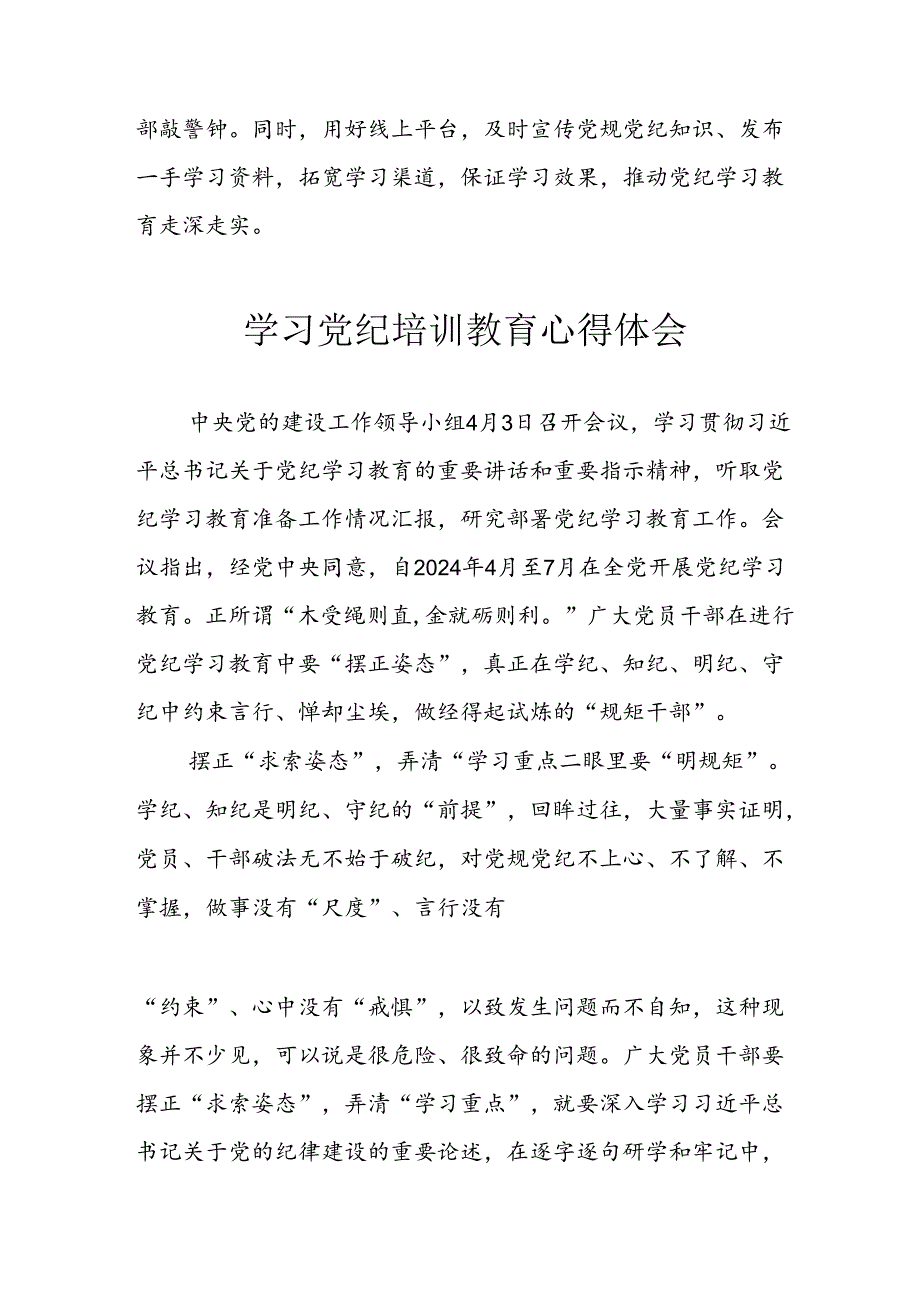 部敲警钟。同时，用好线上平台，及时宣传党规党纪知识、发布
一手学习资料，拓宽学习渠道，保证学习效果，推动党纪学习教
育走深走实。
学习党纪培训教育心得体会
中央党的建设工作领导小组4月3日召开会议，学习贯彻习近
平总书记关于党纪学习教育的重要讲话和重要指示精神，听取党
纪学习教育准备工作情况汇报，研究部署党纪学习教育工作。会
议指出，经党中央同意，自2024年4月至7月在全党开展党纪学习
教育。正所谓“木受绳则直,金就砺则利。”广大党员干部在进行
党纪学习教育中要“摆正姿态”，真正在学纪、知纪、明纪、守
纪中约束言行、惮却尘埃，做经得起试炼的“规矩干部”。
摆正“求索姿态”，弄清“学习重点二眼里要“明规矩”。
学纪、知纪是明纪、守纪的“前提”，回眸过往，大量事实证明，
党员、干部破法无不始于破纪，对党规党纪不上心、不了解、不
掌握，做事没有“尺度”、言行没有
“约束”、心中没有“戒惧”，以致发生问题而不自知，这种现
象并不少见，可以说是很危险、很致命的问题。广大党员干部要
摆正“求索姿态”，弄清“学习重点”，就要深入学习习近平总
书记关于党的纪律建设的重要论述，在逐字逐句研学和牢记中，